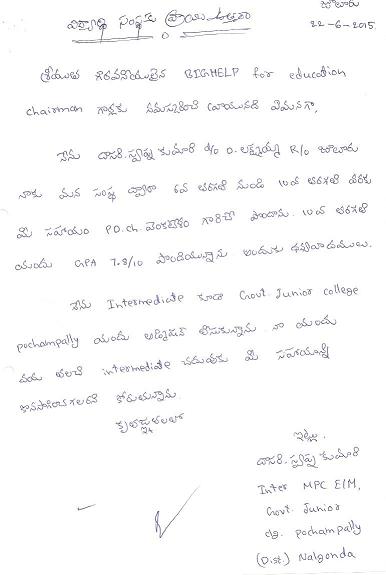 జూలూరు
విద్యార్థి సంస్థకు వ్రాయు ఉత్తరం
22-6-2015
శ్రీయుత గౌరవనీయులైన BIGHELP for education
chairman గార్లకు నమస్కరించి వ్రాయునది ఏమనగా,
నేను దాసరి. స్వప్న కుమారి d/o D. లక్ష్మయ్య R/o జూలూరు
నాకు మన సంస్థ ద్వారా 6వ తరగతి నుండి 10వ తరగతి వరకు
మీ సహాయం P.D. ch. వెంకటేశం గారిచే పొందాను. 10వ తరగతి
యందు GPA 7.8/10 పొందియున్నాను అందుకు ధన్యవాదములు.
నేను Intermediate కూడా Govt. Junior college
pochampally యందు అడ్మిషన్ తీసుకున్నాను నా యందు
దయ తలచి intermediate చదువుకు మీ సహాయాన్ని
కొనసాగించగలరని కోరుతున్నాను.
కృతజ్ఞతలతో
ఇట్లు,
దాసరి. స్వప్న కుమారి
Inter MPC E/M,
Govt. Junior
clg. pochampally
(Dist.) Nalgonda